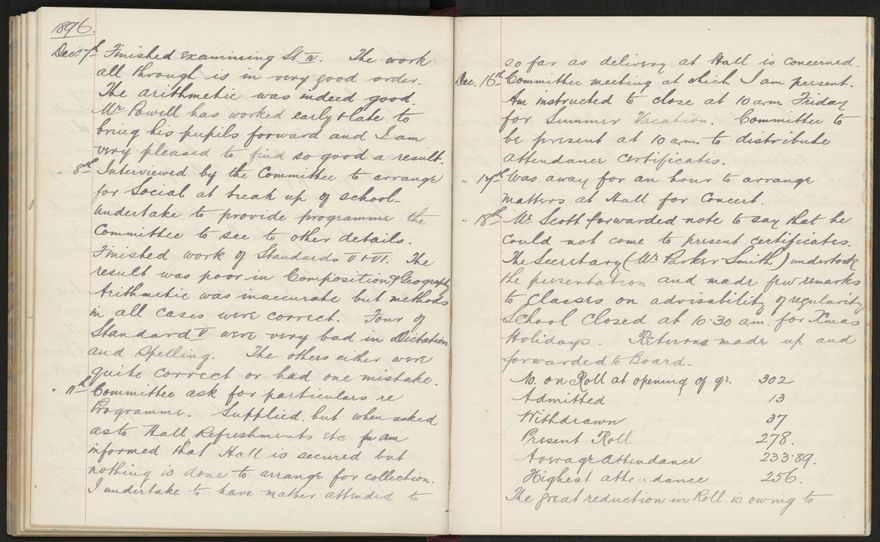 1896.
Dec. 7th Finished examining St IV. The work
all through is in very good order.
The arithmetic was indeed good.
Mr Powell has worked early & late to
bring his pupils forward and I am
very pleased to find so good a result.
" 8th Interviewed by the Committee to arrange
for Social at break up of school.
Undertake to provide programme the
Committee to see to other details.
Finished work of Standards V & VI. The
result was poor in Composition & Geography
Arithmetic was inaccurate but methods
in all cases were correct. Four of
Standard V were very bad in Dictation
and Spelling. The others either were
quite correct or had one mistake.
" 11th Committee ask for particulars re
Programme. Supplied. but when asked
as to Hall, Refreshments etc am
informed that Hall is secured but
nothing is done to arrange for collection.
I undertake to have matter attended to
so far as delivery at Hall is concerned.
Dec. 16th Committee meeting at which I am present.
Am instructed to close at 10 a.m. Friday
for Summer Vacation. Committee to
be present at 10 a.m. to distribute
attendance certificates.
" 17th Was away for an hour to arrange
matters at Hall for Concert.
" 18th Mr Scott forwarded note to say that he
could not come to present certificates.
The Secretary (Mr Parker Smith) undertook
the presentation and made few remarks
to Classes on advisability of regularity
School closed at 10.30 am. for Xmas
Holidays. Returns made up and
forwarded to Board.
No. on Roll at opening of qr. 302
Admitted 13
Withdrawn 37
Present Roll 278.
Average Attendance 233.89.
Highest attendance 256.
The great reduction in Roll is owing to